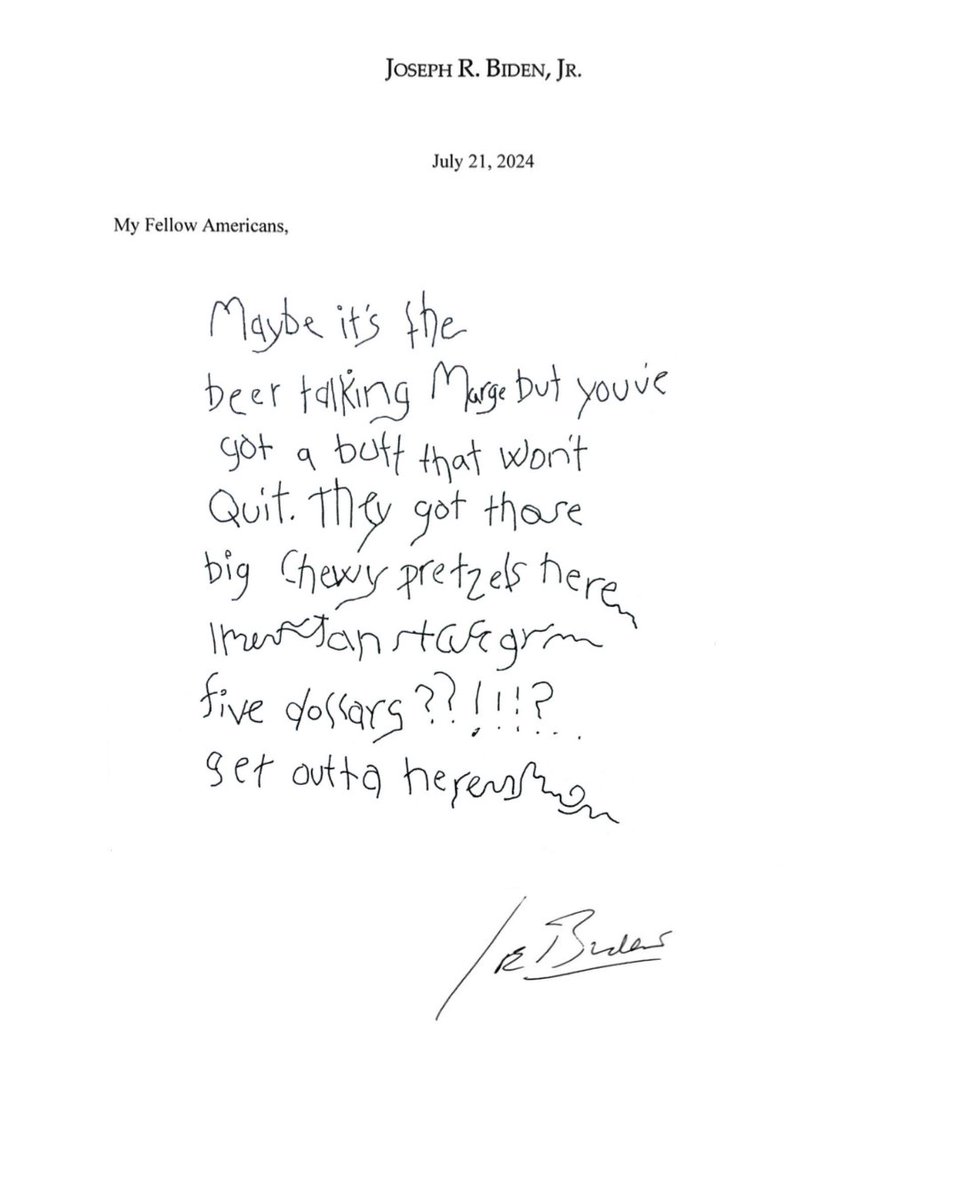 JOSEPH R. BIDEN, JR.
July 21, 2024
My Fellow Americans,
Maybe it's the
beer talking Marge but you've
got a butt that won't
Quit. They got those
big Chewy pretzels here
five dollars??!!!?...
get outta here
Joe Biden